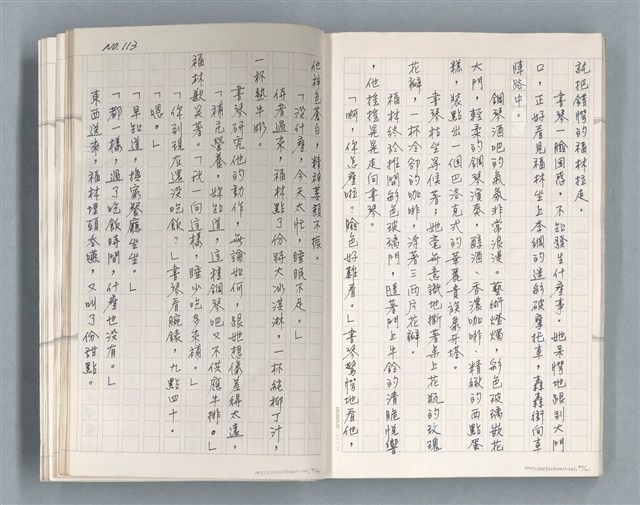 就把錯愕的福林拉走。
書琴一臉困惑，不知發生什麼事。她呆愣地跟到大門
口，正好看見福林坐上李綱的迷彩破摩托車，轟轟衝向車
陣路中。
鋼琴酒吧的氣氛非常浪漫。藝術燈燭，彩色玻璃散花
大門，輕柔的鋼琴演奏，醇酒、香濃咖啡、精緻的西點蛋
糕，裝點出一個巴洛克式的華麗貴族象牙塔。
書琴枯坐等候著；她毫無意識地撕著桌上花瓶的玫瑰
花瓣，一杯冷卻的咖啡，浮著三兩片花瓣。
福林終於推開彩色玻璃門，隨著門上牛鈴的清脆悅響
，他搖搖晃晃走向書琴。
「啊，你怎麼啦？臉色好難看。」書琴驚愕地看他，
NO. 113
他神色蒼白，精神萎靡不振。
「沒什麼，今天太忙，睡眠不足。」
侍者過來，福林點了份特大冰淇淋，一杯純柳丁汁，
一杯熱牛奶。
書琴研究他的動作，無論如何，跟她想像差得太遠。
「補充營養，妳知道，這種鋼琴吧又不供應牛排。」
福林歉笑著。「我一向這樣，睡少吃多來補。」
「你到現在還沒吃飯？」書琴看腕錶，九點四十。
「嗯。」
「早知道，換家餐廳坐坐。」
「都一樣，過了吃飯時間，什麼也沒有。」
東西送來，福林埋頭吞嚥，又叫了份甜點。